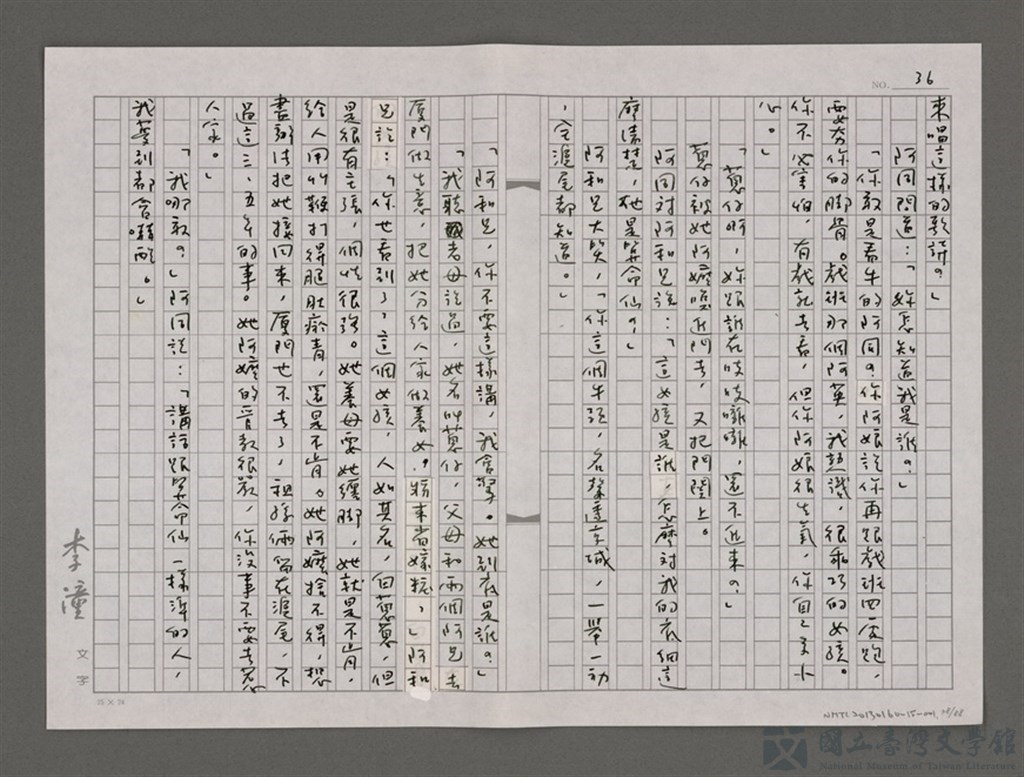 NO. 36
來唱這樣的歌評？」
阿同問道：「妳怎知道我是誰？」
「你敢是看牛的阿同？你阿娘說你再跟戲班四處跑，
要夯你的脚骨。戲班那個阿英，我熟識，很乖巧的女孩。
你不必害怕，有戲就去看，但你阿娘很生氣，你自己要小
心。」
「蔥仔啊，妳跟誰在吱吱喳喳，還不近來？」
蔥仔被她阿嬤喚近門去，又把門閂上。
阿同對阿和兄說：「這女孩是誰，怎麼對我的底細這
麼清楚，她是算命仙？」
阿和兄大笑，「你這個牛頭，名聲透京城，一舉一動
，全滬尾都知道。」
「阿和兄，你不要這樣講，我會驚。她到底是誰？」
「我聽老母說過，她名叫蔥仔，父母和兩個阿兄去
廈門做生意，把她分給人家做養女，將來當嫁粧，」阿和
兄說：「你也看到了，這個女孩，人如其名，白蔥蔥，但
是很有主張，個性很強。她養母要她纏脚，她就是不肯，
給人用竹鞭打得腿肚瘀青，還是不肯。她阿嬤捨不得，想
盡辦法把她接回來，廈門也不去了，祖孫倆留在滬尾，不
過這三、五年的事。她阿嬤的管教很嚴，你沒事不要去惹
人家。」
「我哪敢？」阿同說：「講話跟算命仙一樣準的人，
我夢到都會嚇醒。」
李潼 文字
25 X 24
NMTL20130160-15-001
國立臺灣文學館
National Museum of Taiwan Literature